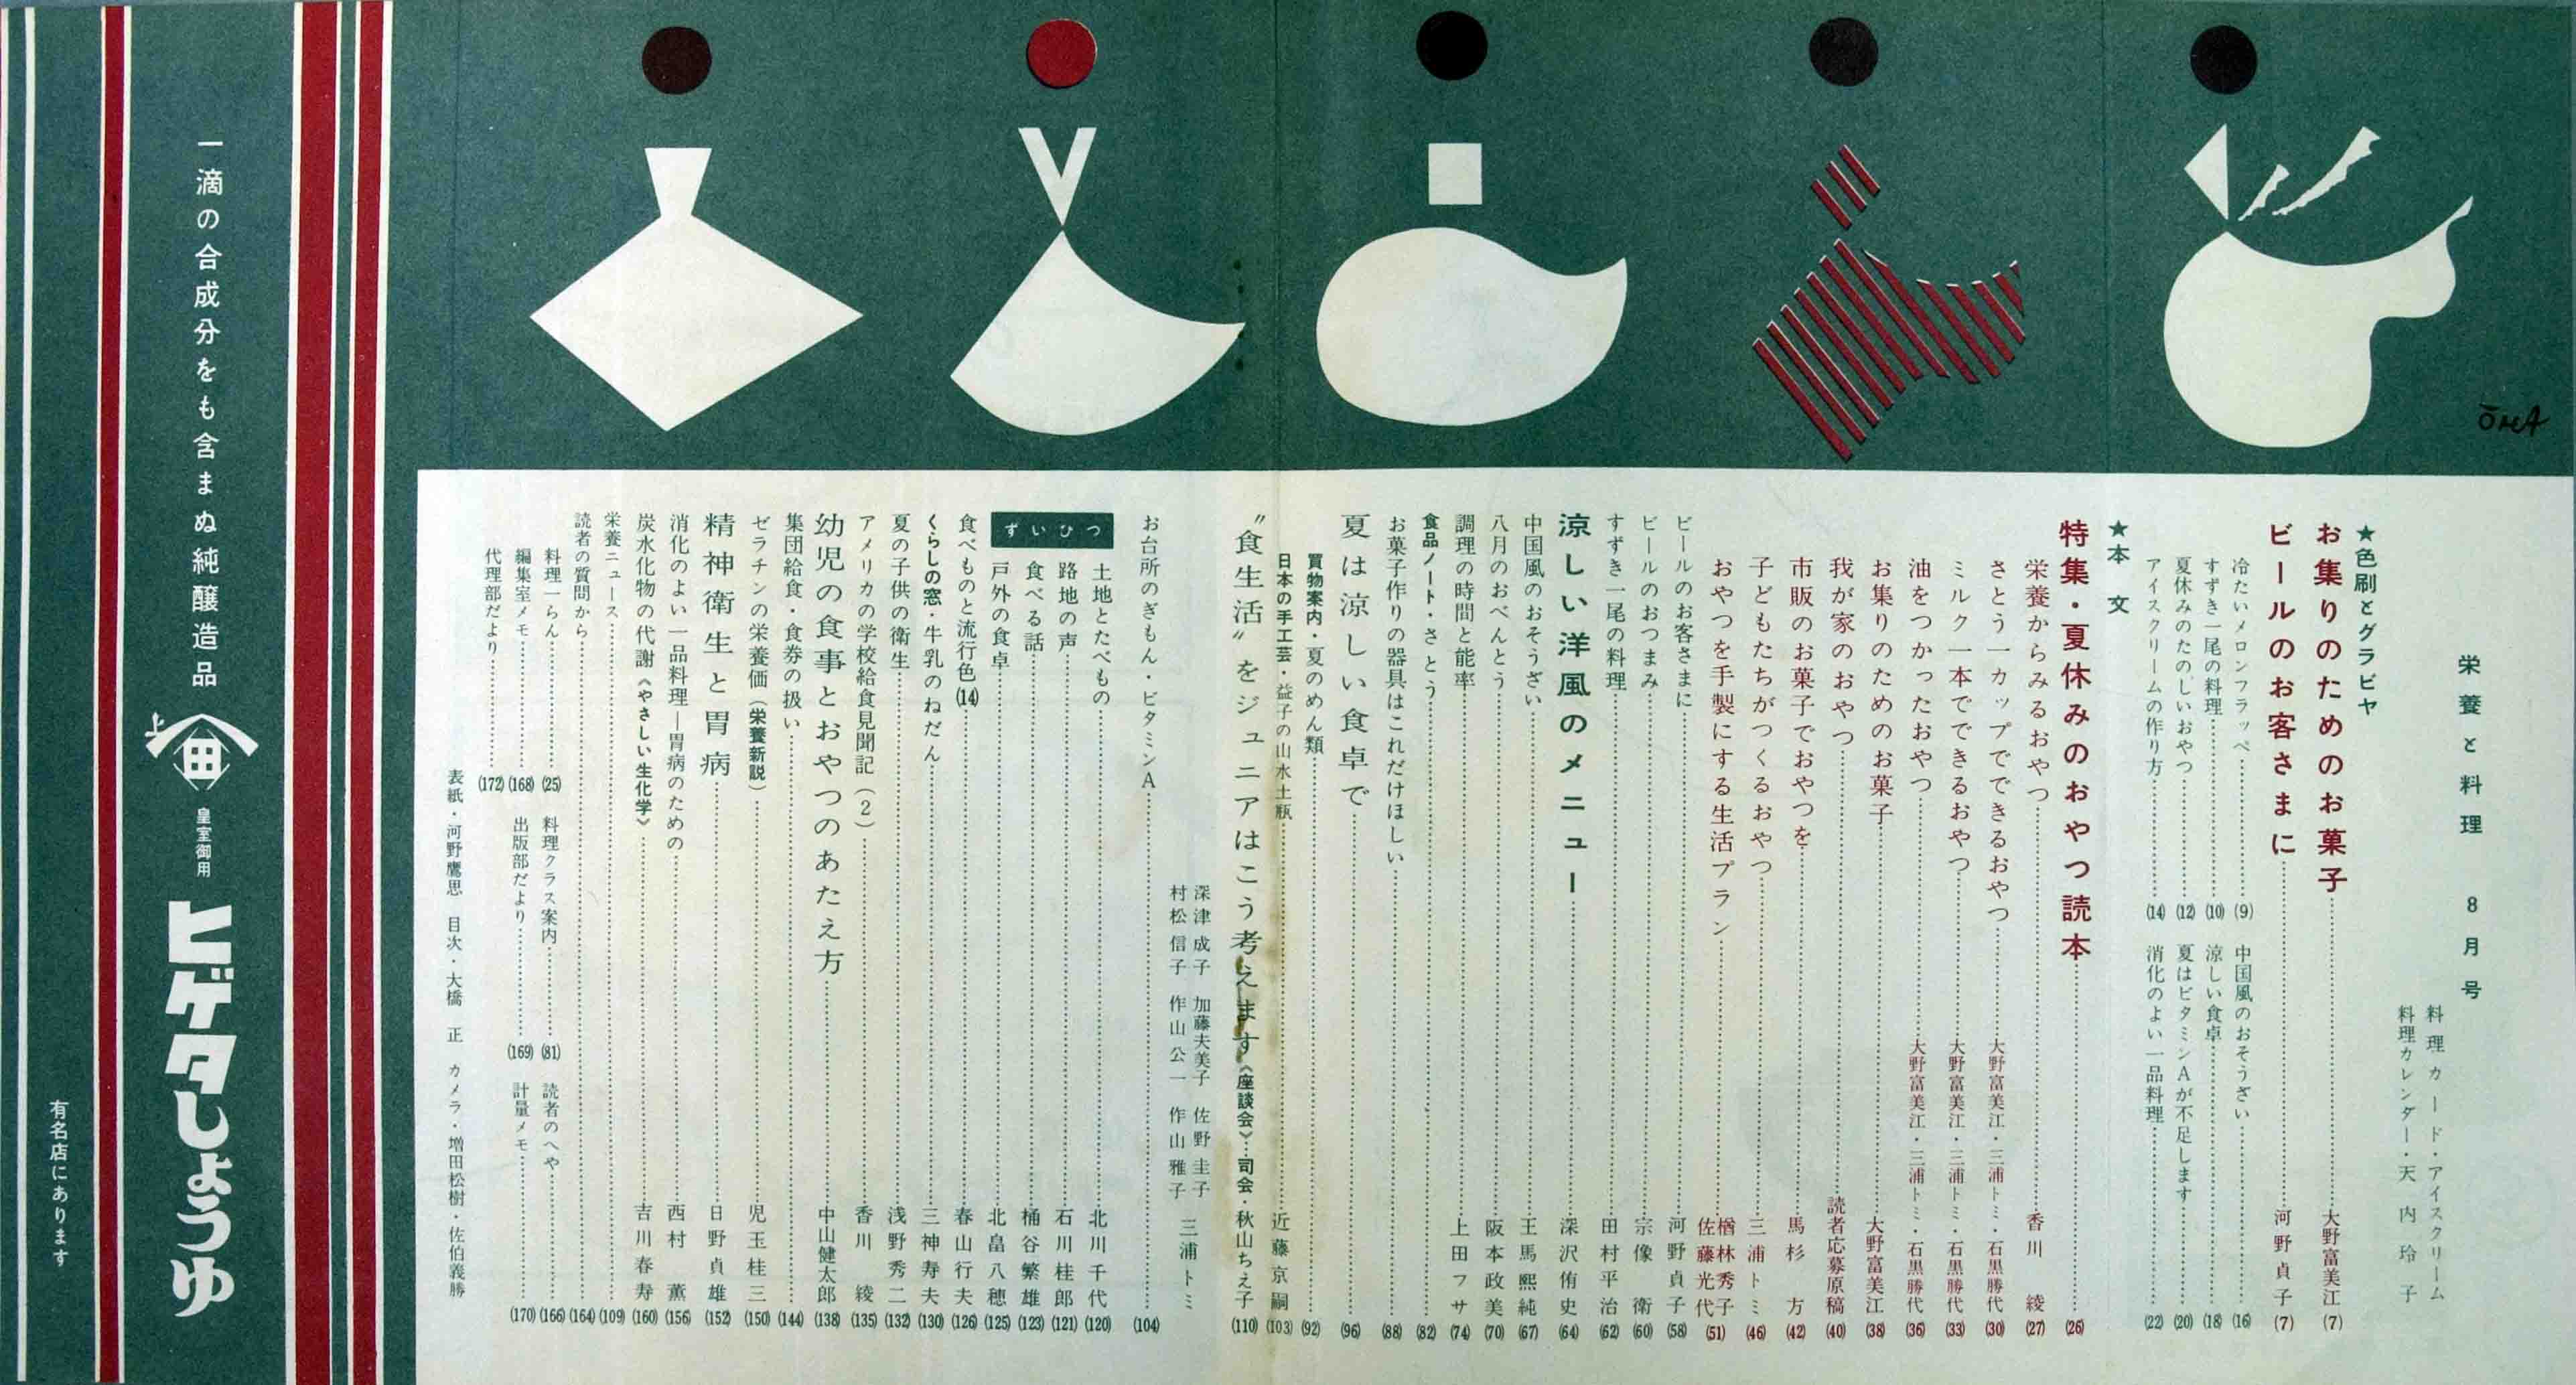 栄養と料理 8月号
料理カード・アイスクリーム
料理カレンダー・天内玲子
★色刷とグラビヤ
お集りのためのお菓子……大野富美江(7)
ビールのお客さまに……河野貞子(7)
冷たいメロンフラッペ……(9) 中国風のおそうざい……(16)
すずき一尾の料理……(10) 涼しい食卓……(18)
夏休みのたのしいおやつ……(12) 夏はビタミンAが不足します……(20)
アイスクリームの作り方……(14) 消化のよい一品料理……(22)
★本文
特集・夏休みのおやつ読本……(26)
栄養からみるおやつ……香川 綾(27)
さとう一カップでできるおやつ……大野富美江・三浦トミ・石黒勝代(30)
ミルク一本でできるおやつ……大野富美江・三浦トミ・石黒勝代(33)
油をつかったおやつ……大野富美江・三浦トミ・石黒勝代(36)
お集りのためのお菓子……大野富美江(38)
我が家のおやつ……読者応募原稿(40)
市販のお菓子でおやつを……馬杉 方(42)
子どもたちがつくるおやつ……三浦トミ(46)
おやつを手製にする生活プラン……楢林秀子 佐藤光代(51)
ビールのお客さまに……河野貞子(58)
ビールのおつまみ……宗像 衛(60)
すずき一尾の料理……田村平治(62)
涼しい洋風のメニュー……深沢侑史(64)
中国風のおそうざい……王馬熙純(67)
八月のおべんとう……阪本政美(70)
調理の時間と能率……上田フサ(74)
食品ノート・さとう……(82)
お菓子作りの器具はこれだけほしい……(88)
夏は涼しい食卓で……(96)
買物案内・夏のめん類……(92)
日本の手工芸・益子の山水土瓶……近藤京嗣(103)
〝食生活〟をジュニアはこう考えます《座談会》・司会・秋山ちえ子(110)
深津成子 加藤夫美子 佐野圭子 三浦トミ
村松信子 作山公一 作山雅子
お台所のぎもん・ビタミンA……(104)
ずいひつ
土地とたべもの……北川千代(120)
路地の声……石川桂郎(121)
食べる話……桶谷繁雄(123)
戸外の食卓……北畠八穂(125)
食べものと流行色(14)……春山行夫(126)
くらしの窓・牛乳のねだん……三神寿夫(130)
夏の子供の衛生……浅野秀二(132)
アメリカの学校給食見聞記(2)……香川 綾(135)
幼児の食事とおやつのあたえ方……中山健太郎(138)
集団給食・食券の扱い……(144)
ゼラチンの栄養価(栄養新説)……児玉桂三(150)
精神衛生と胃病……日野貞雄(152)
消化のよい一品料理―胃病のための……西村 薫(156)
炭水化物の代謝《やさしい生化学》……吉川春寿(160)
栄養ニュース……(109)
読者の質問から……(164)
料理一らん……(25) 料理クラス案内……(81) 読者のへや……(166)
編集室メモ……(168) 出版部だより……(169) 計量メモ……(170)
代理部だより……(172)
表紙・河野鷹思 目次・大橋 正 カメラ・増田松樹・佐伯義勝
一滴の合成分をも含まぬ純醸造品
上
田
皇室御用
ヒゲタしょうゆ
有名店にあります